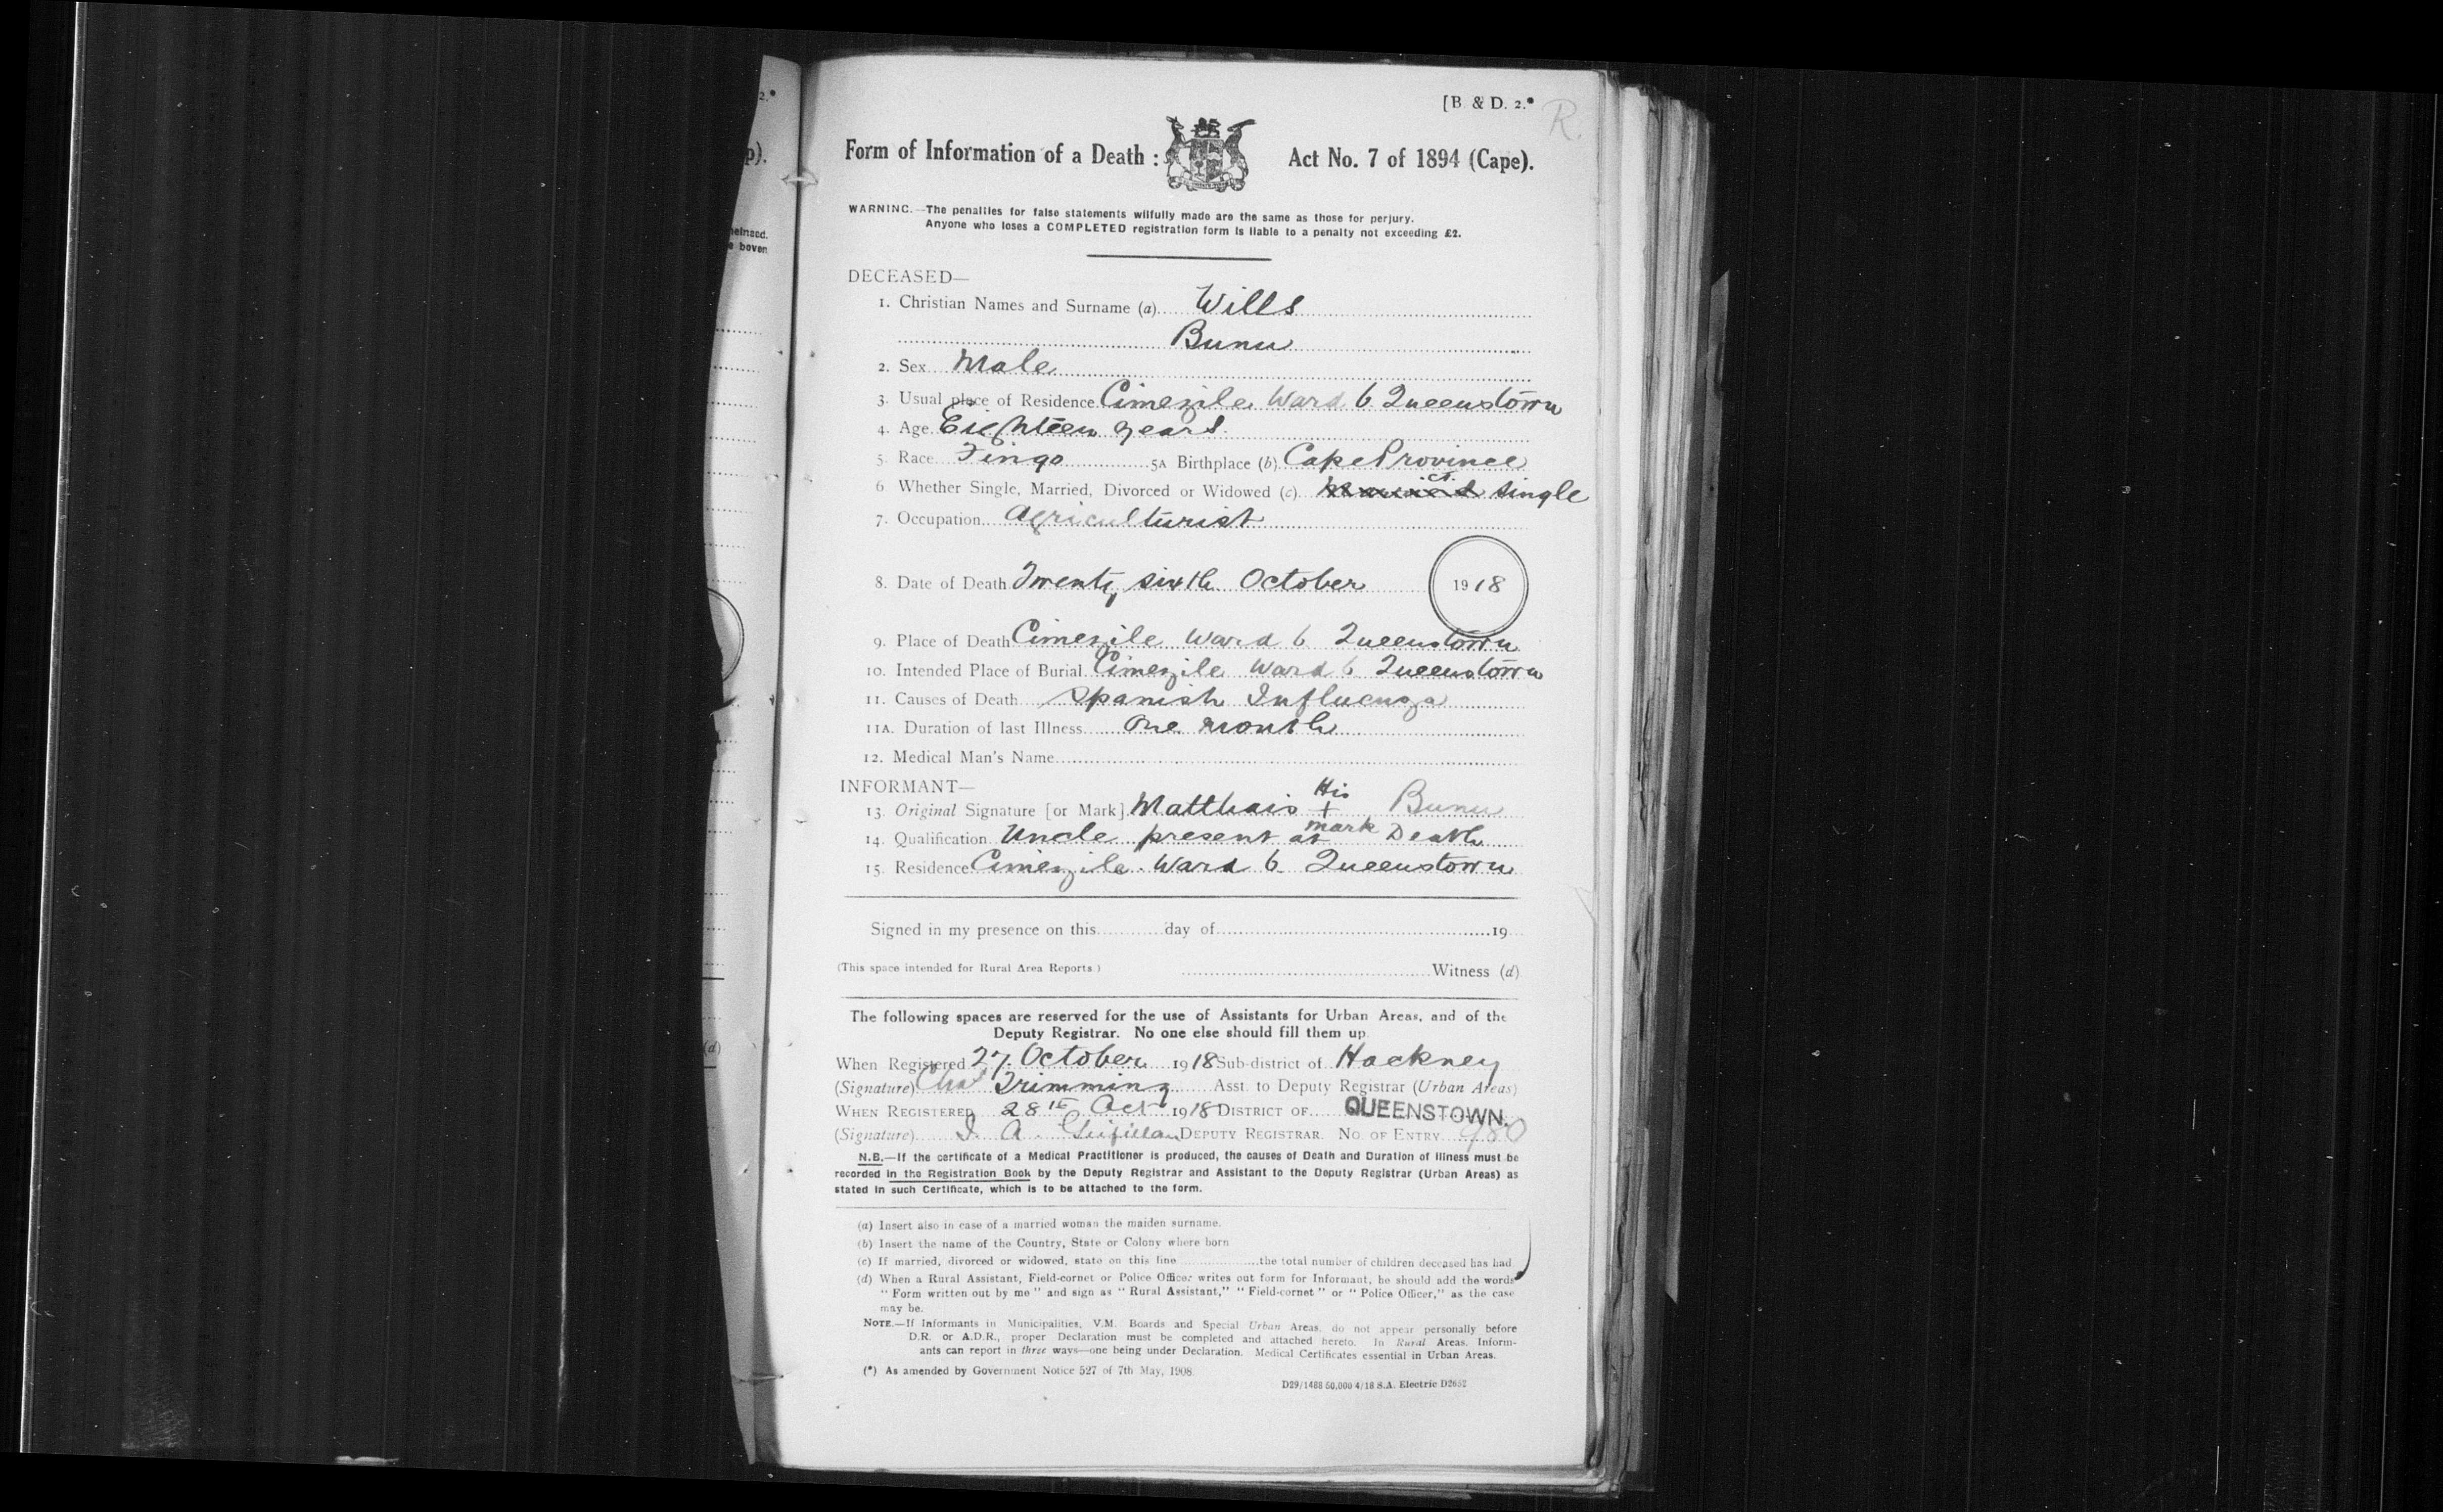 [B. & D. 2.*
R.
Form of Information of a Death : Act No. 7 of 1894 (Cape).
WARNING.—The penalties for false statements wilfully made are the same as those for perjury.
Anyone who loses a COMPLETED registration form is liable to a penalty not exceeding £2.
DECEASED—
1. Christian Names and Surname (a) Wills
Bunu
2. Sex Male
3. Usual place of Residence Cimezile Ward 6 Queenstown
4. Age Eighteen years
5. Race Fingo 5A Birthplace (b) Cape Province
6 Whether Single, Married, Divorced or Widowed (c) Married C.T. single
7. Occupation Agriculturist
8. Date of Death Twenty sixth October 1918
9. Place of Death Cimezile Ward 6 Queenstown
10. Intended Place of Burial Cimezile Ward 6 Queenstown
11. Causes of Death Spanish Influenza
11A. Duration of last Illness One month
12. Medical Man's Name
INFORMANT—
13. Original Signature [or Mark] Matthais His + mark Bunu
14. Qualification Uncle present at Death
15. Residence Cimezile Ward 6 Queenstown
Signed in my presence on this day of 19
(This space intended for Rural Area Reports.) Witness (d)
The following spaces are reserved for the use of Assistants for Urban Areas, and of the
Deputy Registrar. No one else should fill them up
When Registered 27. October 1918 Sub-district of Hackney
(Signature) Chas Trimming Asst. to Deputy Registrar (Urban Areas)
WHEN REGISTERED 28th Oct 1918 DISTRICT OF QUEENSTOWN.
(Signature) DEPUTY REGISTRAR. NO. OF ENTRY 980
N.B.—If the certificate of a Medical Practitioner is produced, the causes of Death and Duration of Illness must be
recorded in the Registration Book by the Deputy Registrar and Assistant to the Deputy Registrar (Urban Areas) as
stated in such Certificate, which is to be attached to the form.
(a) Insert also in case of a married woman the maiden surname.
(b) Insert the name of the Country, State or Colony where born
(c) If married, divorced or widowed, state on this line the total number of children deceased has had
(d) When a Rural Assistant, Field-cornet or Police Officer writes out form for Informant, he should add the words
" Form written out by me " and sign as " Rural Assistant," " Field-cornet " or " Police Officer," as the case
may be.
NOTE.—If Informants in Municipalities, V.M. Boards and Special Urban Areas, do not appear personally before
D.R. or A.D.R., proper Declaration must be completed and attached hereto. In Rural Areas, Inform-
ants can report in three ways—one being under Declaration. Medical Certificates essential in Urban Areas.
(*) As amended by Government Notice 527 of 7th May, 1908
D29/1488 50,000 4/18 S.A. Electric D2652